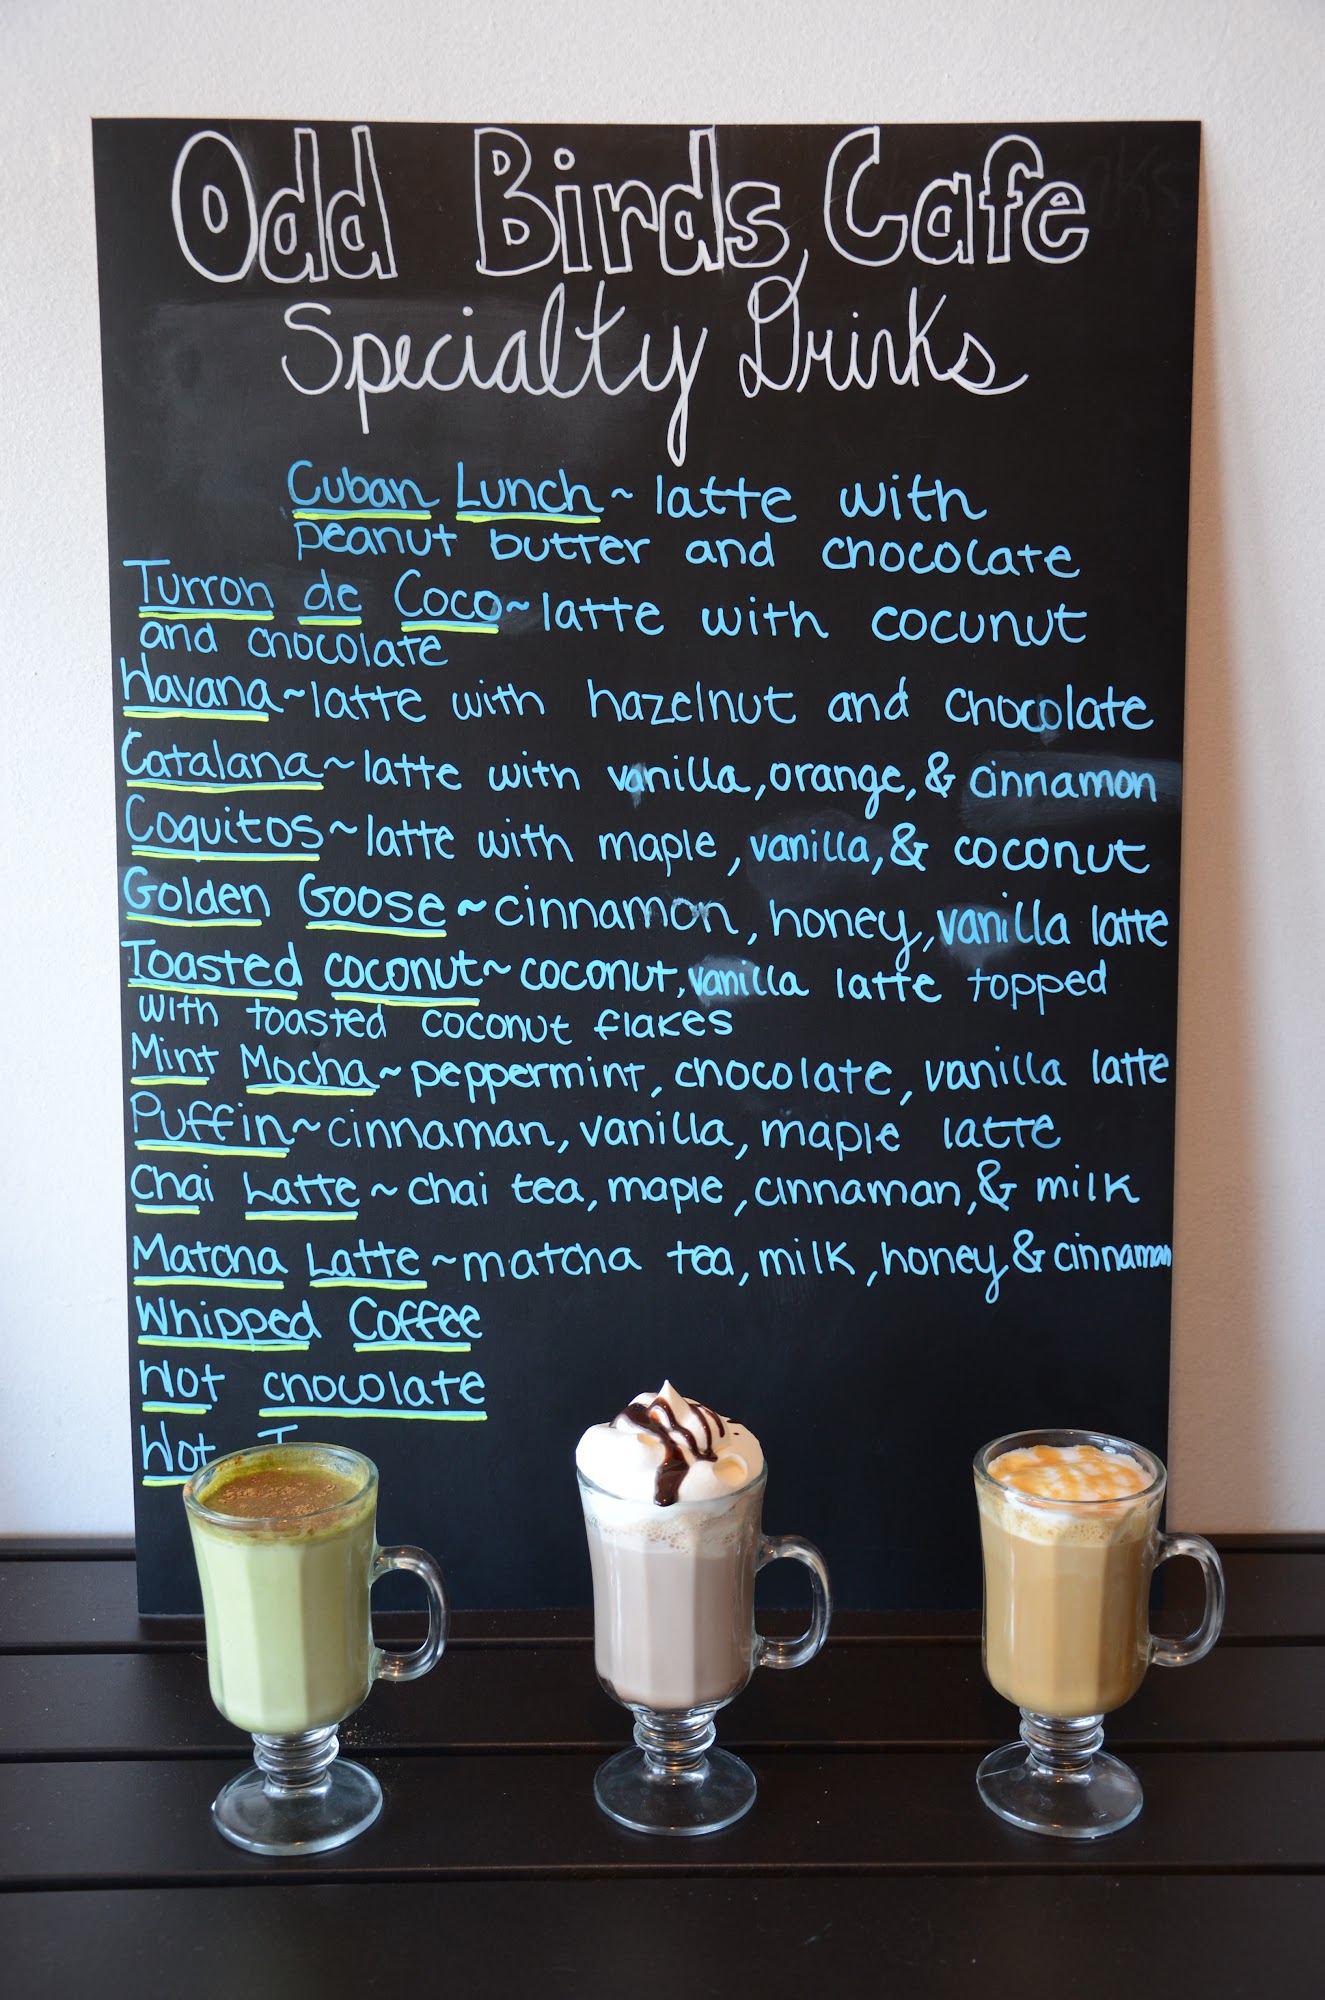 Odd Birds Cafe
Specialty Drinks
Cuban Lunch ~ latte with
peanut butter and chocolate
Turron de Coco ~ latte with cocunut
and chocolate
Havana ~ latte with hazelnut and chocolate
Catalana ~ latte with vanilla, orange, & cinnamon
Coquitos ~ latte with maple, vanilla, & coconut
Golden Goose ~ cinnamon, honey, vanilla latte
Toasted coconut ~ coconut, vanilla latte topped
with toasted coconut flakes
Mint Mocha ~ peppermint, chocolate, vanilla latte
Puffin ~ cinnaman, vanilla, maple latte
Chai Latte ~ chai tea, maple, cinnaman, & milk
Matcha Latte ~ matcha tea, milk, honey & cinnaman
Whipped Coffee
Hot chocolate
Hot